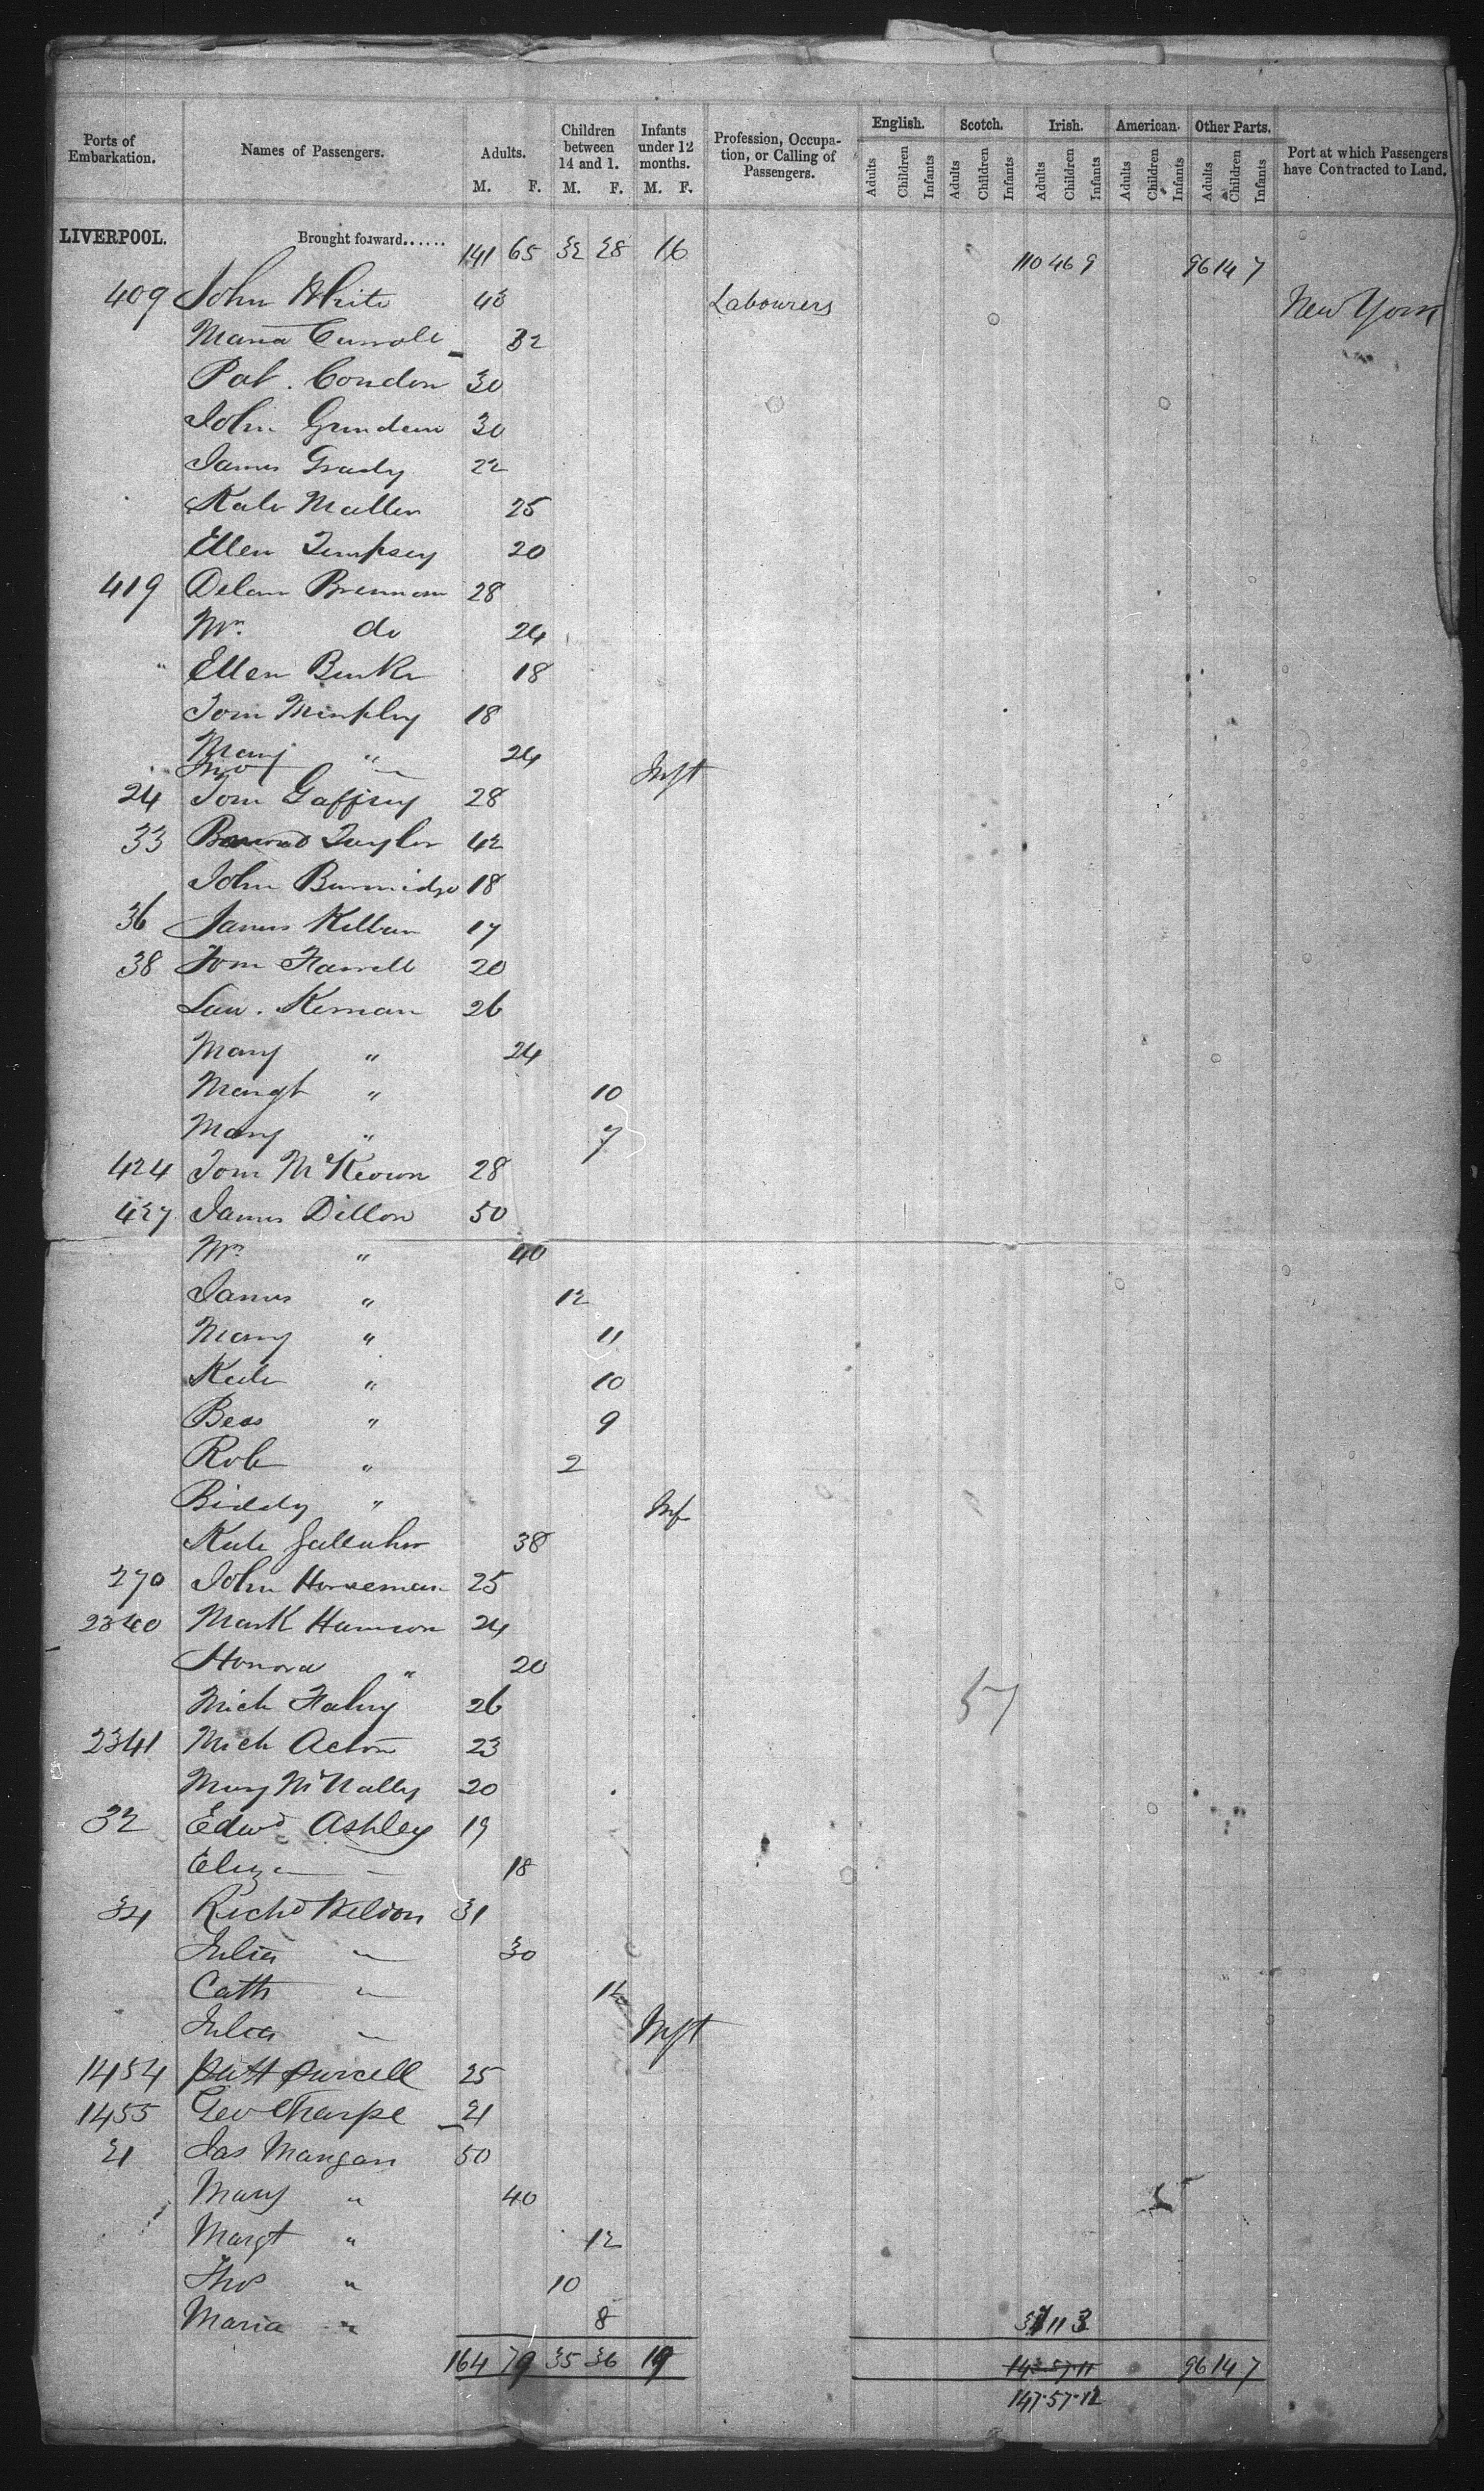 Ports of Embarkation. Names of Passengers. Adults. M. F. Children between 14 and 1. M. F. Infants under 12 months. M. F. Profession, Occupation, or Calling of Passengers. English. Adults Children Infants Scotch. Adults Children Infants Irish. Adults Children Infants American. Adults Children Infants Other Parts. Adults Children Infants Port at which Passengers have Contracted to Land.
LIVERPOOL. Brought forward...... 141 65 32 28 16 110 46 9 96 14 7
409 John White 43 Labourers New York
Maria 32
Pat. Condon 30
John 30
James Grady 22
Kate Mullen 25
Ellen Dempsey 20
419 Brennan 28
Mrs do 24
" Ellen Burke 18
Tom Murphy 18
Mary " 24
Inft
24 Tom Gaffney 28
33 Taylor 42
John 18
36 James 17
38 Tom Farrell 20
Law. Kernan 26
Mary " 24
Margt " 10
Mary " 7
424 Tom McKeown 28
427 James Dillon 50
Mrs " 40
James " 12
Mary " 11
Kate " 10
Bess " 9
Rob " 2
Biddy " Inf
Kate Gallaher 38
270 John Horseman 25
2340 Mark 24
Honora " 20
Mich Fahey 26
57
2341 Mich Acton 23
Mary McNally 20
32 Edwd Ashley 19
Eliza — 18
34 Richd Weldon 31
Julia " 30
Cath "
Julia " Inft
1454 Patt Purcell 25
1455 Geo Tharpe 21
21 Jas Mangan 50
Mary " 40
Margt " 12
Thos " 10
Maria " 8 37 11 3
164 79 35 36 19 143·57·11 96 14 7
147·57·12